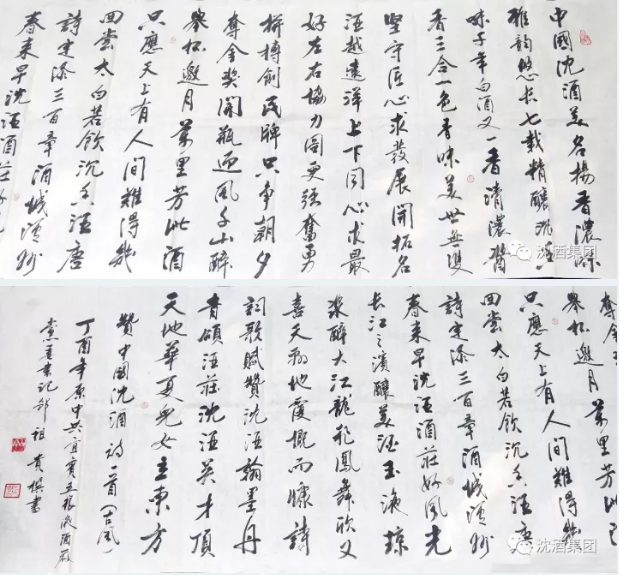 中國沈酒美名揚香濃味
雅韻悠长七载精釀沉香
味千年白酒又一香清濃醬
香三合一色香味美世無雙
堅守匠心求發展開拓名
酒越遠洋上下同心求最
好左右協力圖更强奮勇
拼搏創民牌只争朝夕
奪金奖開瓶迎風千山醉
舉杯邀月萬里芳此酒
只應天上有人間難得幾
回嘗太白若飲沉香酒唐
詩定添三百章酒城
春来早沈酒酒莊好
沈酒集团
奪金
舉杯邀月萬里芳此
只應天上有人間難得幾
回嘗太白若飲沉香酒唐
詩定添三百章酒城
春来早沈酒酒莊好風光
長江之濱釀美酒玉液瓊
漿醉大江龍飛鳳舞欣又
喜天翻地覆慨而慷詩
詞歌賦贊沈酒翰墨丹
青頌酒莊沈酒英才頂
天地華夏兒女立東方
贊中國沈酒詩二首(古風)
丁酉年原中共宜賓五粮液酒厰
黨委書记鄒祖貴撰書
沈酒集团